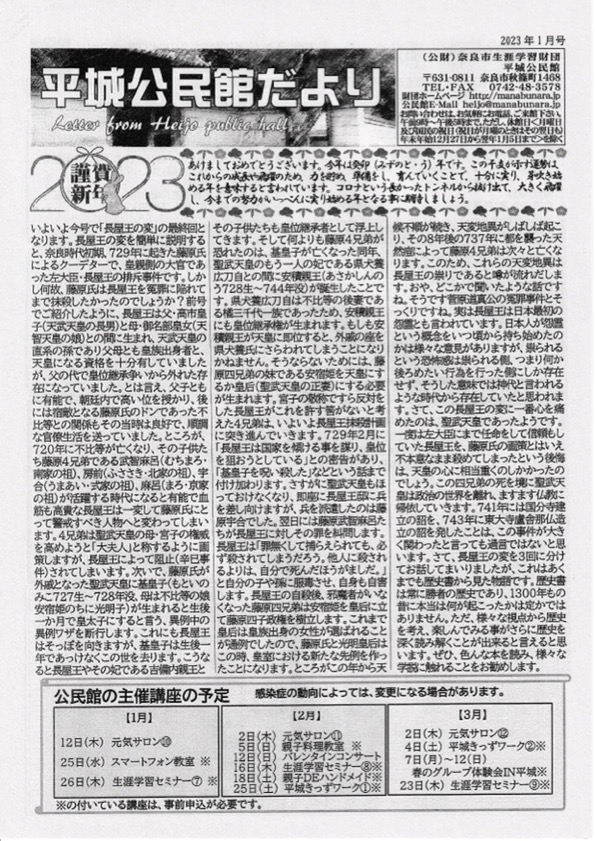 2023年1月号
平城公民館だより
Letter from Heijo public hall
(公財)奈良市生涯学習財団
平城公民館
〒631-0811 奈良市秋篠町1468
TEL・FAX 0742-48-3578
財団ホームページ http://manabunara.jp
公民館E-Mail heijo@manabunara.jp
お問い合わせは、お気軽にお電話、ご来館下さい。
午前9時~午後5時まで。ただし、休館日<月曜日
及び国民の祝日(祝日が月曜のときはその翌日も)
年末年始12月27日から翌年1月5日まで>を除く
2023
謹賀
新年
あけましておめでとうございます。今年は癸卯(みずのと・う)年です。この干支が示す運勢は、
これからの成長や飛躍のため、力を貯め、準備をし、育んでいくことで、十分に実り、芽吹き始
める年を意味すると言われています。コロナという長かったトンネルから抜け出て、大きく飛躍
し、今までの努力がいっぺんに実り始める年となる事に期待しましょう。
いよいよ今号で「長屋王の変」の最終回と
なります。長屋王の変を簡単に説明する
と、奈良時代初期、729年に起きた藤原氏
によるクーデターで、皇親側の大官であ
った左大臣・長屋王の排斥事件です。しか
し何故、藤原氏は長屋王を冤罪に陥れて
まで抹殺したかったのでしょうか?前号
でご紹介したように、長屋王は父・高市皇
子(天武天皇の長男)と母・御名部皇女(天
智天皇の娘)との間に生まれ、天武天皇の
直系の孫であり父母とも皇族出身者と、
天皇になる資格を十分有していました
が、父の代で皇位継承争いから外れた存
在になっていました。とは言え、父子とも
に有能で、朝廷内で高い位を授かり、後
には宿敵となる藤原氏のドンであった不
比等との関係もその当時は良好で、順調
な官僚生活を送っていました。ところが、
720年に不比等が亡くなり、その子供た
ち藤原4兄弟である武智麻呂(むちまろ・
南家の祖)、房前(ふささき・北家の祖)、宇
合(うまあい・式家の祖)、麻呂(まろ・京家
の祖)が活躍する時代になると有能で血
筋も高貴な長屋王は一変して藤原氏にと
って警戒すべき人物へと変わってしまい
ます。4兄弟は聖武天皇の母・宮子の権威
を高めようと「大夫人」と称するように画
策しますが、長屋王によって阻止(辛巳事
件)されてしまいます。次いで、藤原氏が
外戚となった聖武天皇に基皇子(もといの
みこ727生~728年没、母は不比等の娘
安宿姫のちに光明子)が生まれると生後
一か月で皇太子にすると言う、異例中の
異例ワザを断行します。これにも長屋王
はそっぽを向きますが、基皇子は生後一
年であっけなくこの世を去ります。こうな
ると長屋王やその妃である吉備内親王と
その子供たちも皇位継承者として浮上し
てきます。そして何よりも藤原4兄弟が
恐れたのは、基皇子が亡くなった同年、
聖武天皇のもう一人の妃である県犬養
広刀自の間に安積親王(あさかしんの
う728生~744年没)が誕生したことで
す。県犬養広刀自は不比等の後妻であ
る橘三千代一族であったため、安積親王
にも皇位継承権が生まれます。もしも安
積親王が天皇に即位すると、外戚の座を
県犬養氏にさらわれてしまうことになり
かねません。そうならないためには、藤
原四兄弟の妹である安宿姫を天皇にす
るか皇后(聖武天皇の正妻)にする必要
が生まれます。宮子の敬称ですら反対を
した長屋王がこれを許す筈がないと考
えた4兄弟は、いよいよ長屋王抹殺計画
に突き進んでいきます。729年2月に
「長屋王は国家を傾ける事を謀り、皇位
を狙おうとしている」との密告があり、
「基皇子を呪い殺した」などという話まで
付け加わります。さすがに聖武天皇もほ
っておけなくなり、即座に長屋王邸に兵
を差し向けますが、兵を派遣したのは藤
原宇合でした。翌日には藤原武智麻呂た
ちが長屋王に対しその罪を糾問します。
長屋王は「罪無くして捕らえられても、必
ず殺されてしまうだろう。他人に殺され
るよりは、自分で死んだほうがましだ。」
と自分の子や孫に服毒させ、自身も自害
します。長屋王の自殺後、邪魔者がいな
くなった藤原四兄弟は安宿姫を皇后に立
て藤原四子政権を樹立します。これまで
皇后は皇族出身の女性が選ばれること
が通例でしたので、藤原氏と光明皇后は
この時、皇室における新たな先例を作っ
たことになります。ところがこの年から天
候不順が続き、天変地異がしばしば起こ
り、その8年後の737年に都を襲った天
然痘によって藤原4兄弟は次々と亡くな
ります。このため、これらの天変地異は
長屋王の祟りであると噂が流れだしま
す。おや、どこかで聞いたような話です
ね。そうです菅原道真公の冤罪事件とそ
っくりですね。実は長屋王は日本最初の
怨霊とも言われています。日本人が怨霊
という概念をいつ頃から持ち始めたの
かは様々な意見がありますが、祟られる
という恐怖感は祟られる側、つまり何か
後ろめたい行為を行った側にしか存在
せず、そうした意味では神代と言われる
ような時代から存在していたと思われま
す。さて、この長屋王の変に一番心を痛
めたのは、聖武天皇であったようです。
一度は左大臣にまで任命をして信頼もし
ていた長屋王を、藤原氏の画策とはいえ
不本意なまま殺めてしまったという後悔
は、天皇の心に相当重くのしかかったの
でしょう。この四兄弟の死を境に聖武天
皇は政治の世界を離れ、ますます仏教に
帰依していきます。741年には国分寺建
立の詔を、743年に東大寺盧舎那仏造
立の詔を発したことは、この事件が大き
く関わったと言っても過言ではないと思
います。さて、長屋王の変を3回に分け
てお話してまいりましたが、これはあくま
でも歴史書から見た物語です。歴史書は
常に勝者の歴史であり、1300年もの
昔に本当は何が起こったかは定かでは
ありません。ただ、様々な視点から歴史
を考え、楽しんでみる事がさらに歴史を
深く読み解くことが出来ると言えると思
います。ぜひ、色んな本を読み、様々な
学説に触れることをお勧めします。
公民館の主催講座の予定 感染症の動向によっては、変更になる場合があります。
【1月】
12日(木) 元気サロン⑩
25日(水) スマートフォン教室 ※
26日(木) 生涯学習セミナー⑦ ※
【2月】
2日(木) 元気サロン⑪
5日(日) 親子料理教室 ※
12日(日) バレンタインコンサート
16日(木) 生涯学習セミナー⑧※
18日(土) 親子DEハンドメイド※
25日(土) 平城きっずワーク①※
【3月】
2日(木) 元気サロン⑫
4日(土) 平城きっずワーク②※
7日(月)~12(日)
春のグループ体験会IN平城※
23日(木) 生涯学習セミナー⑨※
※の付いている講座は、事前申込が必要です。